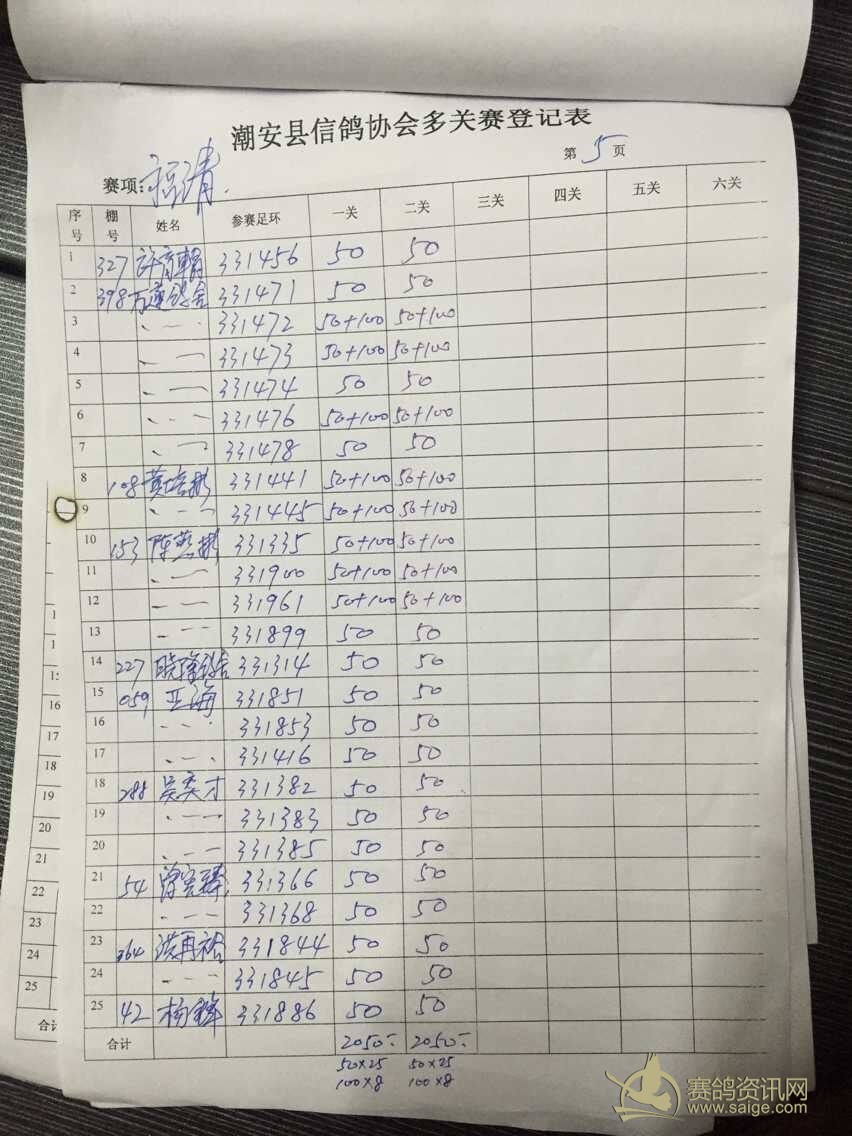 潮安县信鸽协会多关赛登记表
第 5 页
赛项: 福清.
序号 棚号 姓名 参赛足环 一关 二关 三关 四关 五关 六关
1 327 许育 331456 50 50
2 398 万 鸽舍 331471 50 50
3 331472 50+100 50+100
4 331473 50+100 50+100
5 331474 50 50
6 331476 50+100 50+100
7 331478 50 50
8 108 黄培彬 331441 50+100 50+100
9 331445 50+100 50+100
10 153 陈 彬 331335 50+100 50+100
11 331900 50+100 50+100
12 331961 50+100 50+100
13 331899 50 50
14 227 鸽舍 331314 50 50
15 059 亚海 331851 50 50
16 331853 50 50
17 331416 50 50
18 288 吴奕才 331382 50 50
19 331383 50 50
20 331385 50 50
21 54 曾 331366 50 50
22 331368 50 50
23 364 洪再裕 331844 50 50
24 331845 50 50
25 42 杨锋 331886 50 50
合计 2050 2050
50×25 50×25
100×8 100×8
1
1
15
16
17
18
19
20
21
22
23
24
25
合计
赛鸽资讯网
www.saige.com